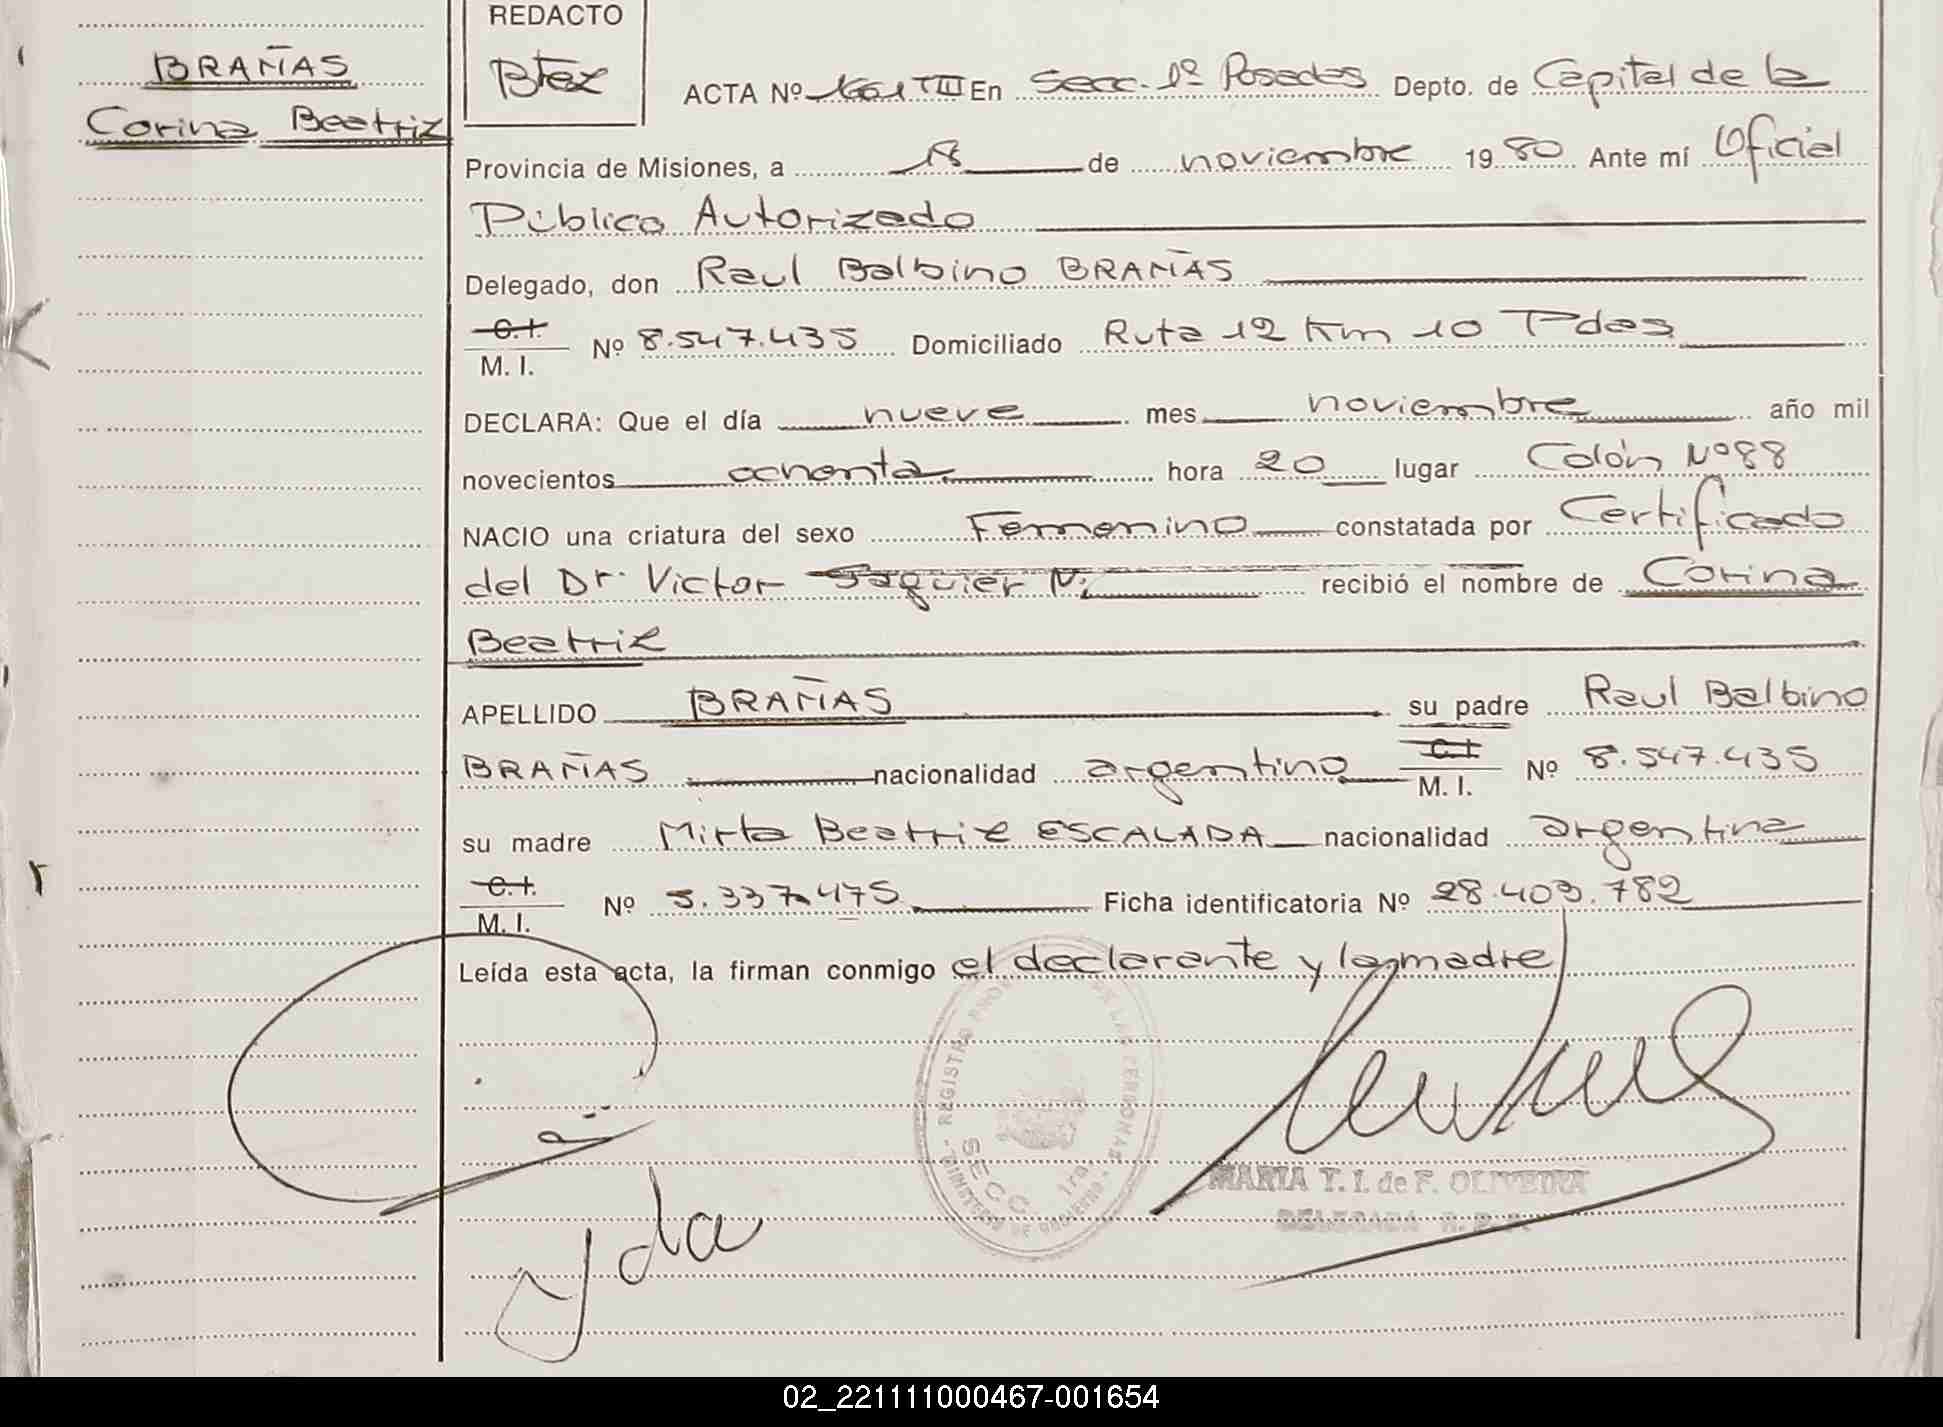 REDACTO
BRAÑAS
Corina Beatriz
ACTA Nº 1661 TIII En Secc. 1º Posadas Depto. de Capital de la
Provincia de Misiones, a 18 de noviembre 1980 Ante mí Oficial
Público Autorizado
Delegado, don Raul Balbino BRAÑAS
C.I.
M. I. Nº 8.547.435 Domiciliado Ruta 12 Km 10 Pdas
DECLARA: Que el día nueve mes noviembre año mil
novecientos ochenta hora 20 lugar Colón Nº 88
NACIO una criatura del sexo Femenino constatada por Certificado
del Dr. Victor Saguier N. recibió el nombre de Corina
Beatriz
APELLIDO BRAÑAS su padre Raul Balbino
BRAÑAS nacionalidad argentino C.I. M. I. Nº 8.547.435
su madre Mirta Beatriz ESCALADA nacionalidad argentina
C.I.
M. I. Nº 5.337.475 Ficha identificatoria Nº 28.403.782
Leída esta acta, la firman conmigo el declarante y la madre
REGISTRO DE LAS PERSONAS
SECC. 1ra
MINISTERIO DE GOBIERNO
MARIA T. I. de F. OLIVEIRA
DELEGADA R. P. P.
02_221111000467-001654